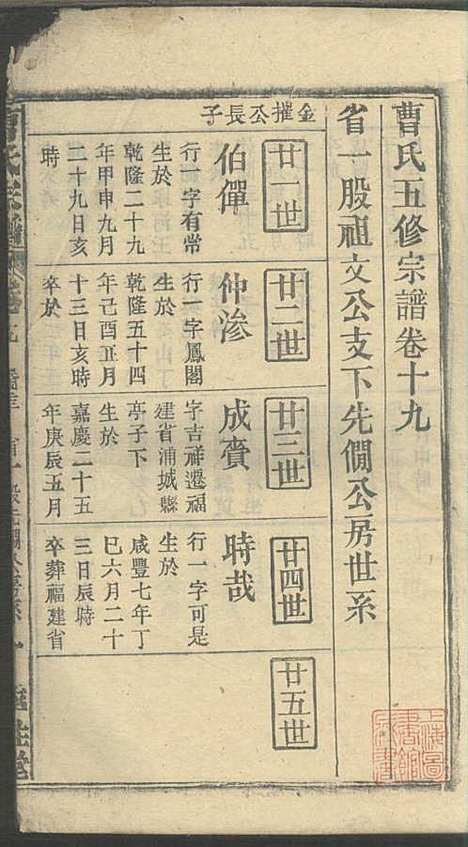 曹氏五修宗譜卷十九
省一股祖文公支下先僩公房世系
廿一世
廿二世
廿三世
廿四世
廿五世
金摧公長子
伯僤
行一字有常
生於
乾隆二十九
年甲申九月
二十九日亥
時
仲滲
行一字鳳閣
生於
乾隆五十四
年己酉正月
十三日亥時
卒於
成賚
字吉祥遷福
建省浦城縣
亭子下
生於
嘉慶二十五
年庚辰五月
時哉
行一字可是
生於
咸豐七年丁
巳六月二十
三日辰時
卒葬福建省
上海圖
書館
藏書